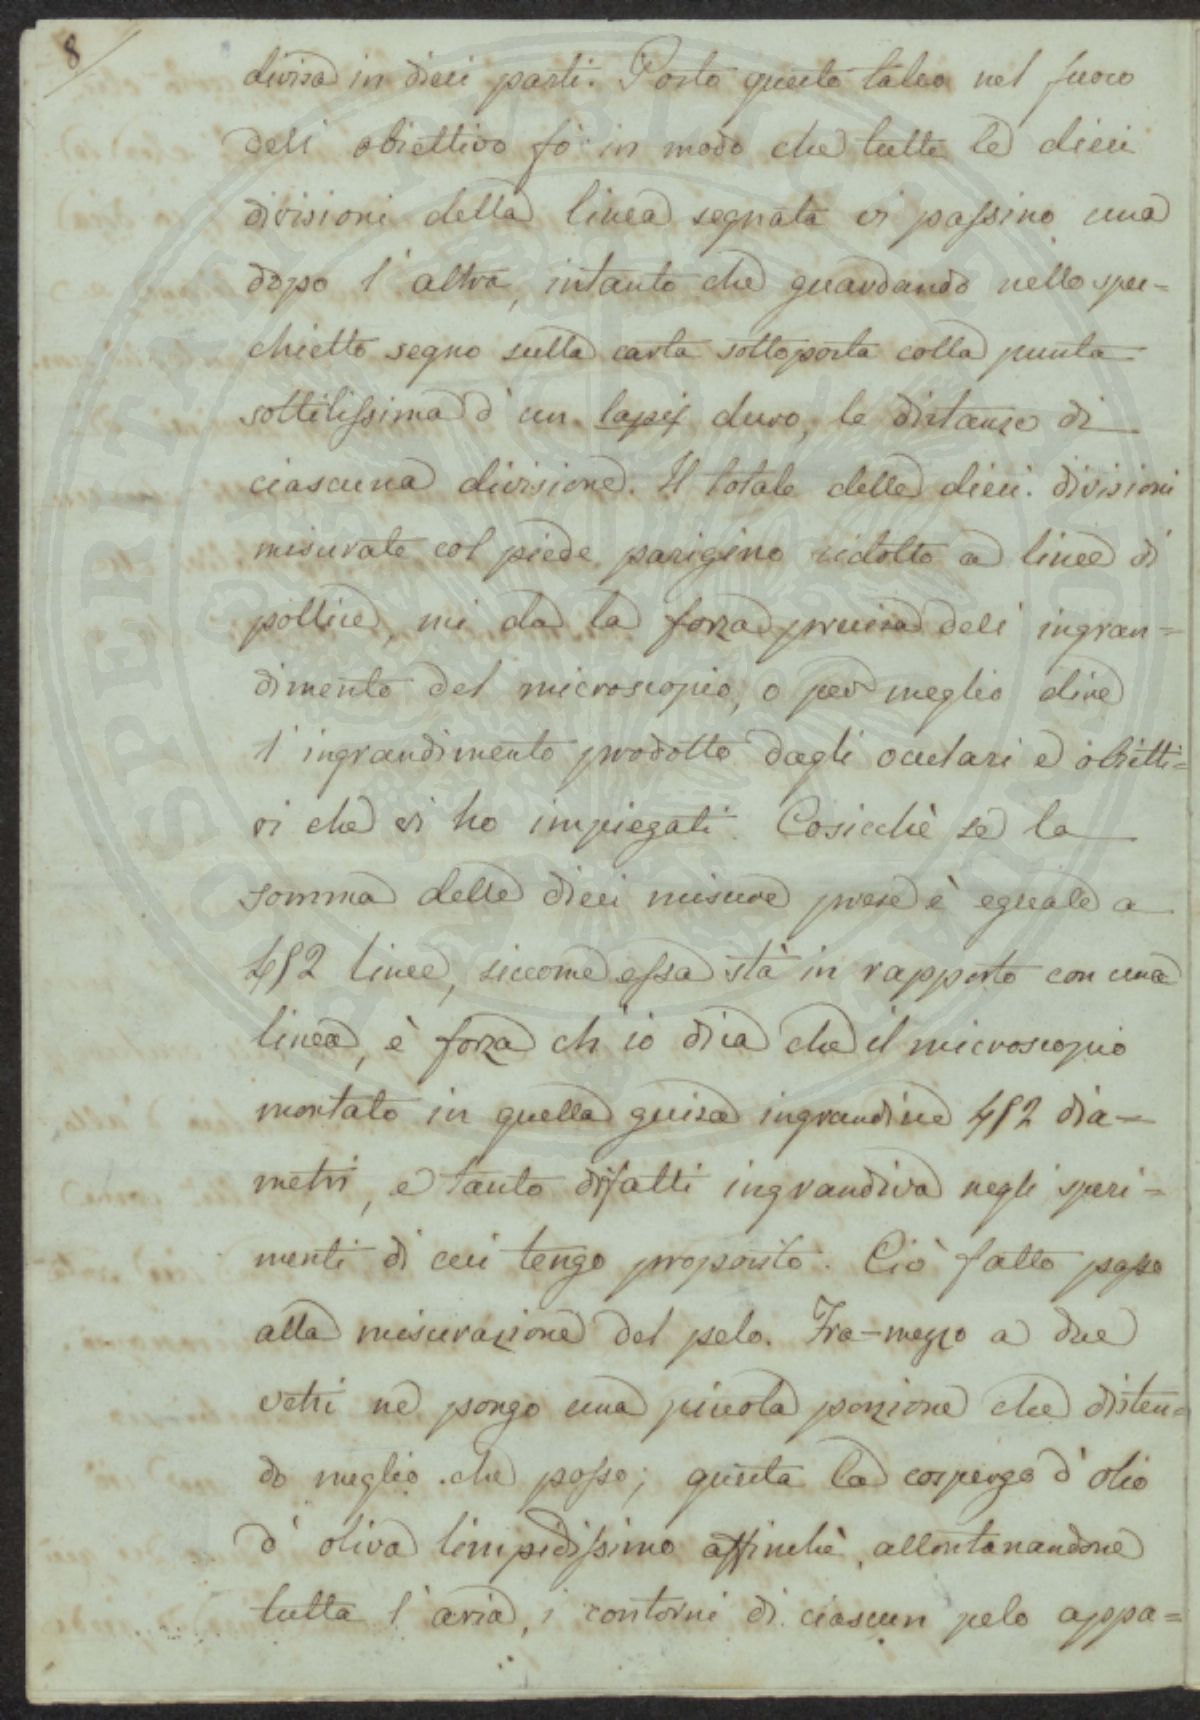 8/
divisa in dieci parti. Posto questo talco nel fuoco
dell' obiettivo fò in modo che tutte le dieci
divisioni della linea segnata vi passino una
dopo l' altra, intanto che guardando nello spec-
chietto segno sulla carta sottoposta colla punta
sottilissima d' un lapis duro, le distanze di
ciascuna divisione. Il totale delle dieci divisioni
misurate col piede parigino ridotto a linee di
pollice, mi da la forza precisa dell' ingran=
dimento del microscopio, o per meglio dire
l' ingrandimento prodotto dagli oculari e obietti=
vi che vi ho impiegati. Cosicchè se la
somma delle dieci misure prese è eguale a
482 linee, siccome essa stà in rapporto con una
linea, è forza ch' io dica che il microscopio
montato in quella guisa ingrandisce 482 dia-
metri, e tanto difatti ingrandiva negli speri=
menti di cui tengo proposito. Ciò fatto passo
alla misurazione del pelo. Fra-mezzo a due
vetri ne pongo una piccola porzione che disten=
do meglio che posso; questa la cospergo d' olio
d' oliva limpidissimo affinchè, allontanandone
tutta l' aria, i contorni di ciascun pelo appa=